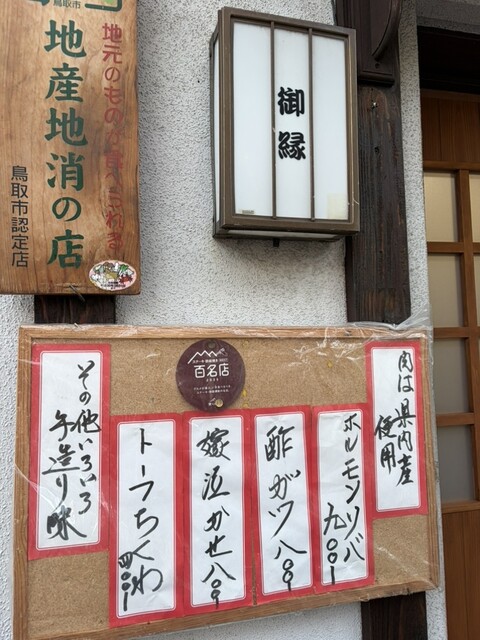 鳥取市
地産地消の店
地元のもの
鳥取市認定店
御縁
百名店
肉は県内産
使用
ホルモンソバ
九〇〇
酢ガツ 八〇〇
嫁泣かせ 八〇〇
トーフちくわ
四〇〇
その他いろいろ
手造り味